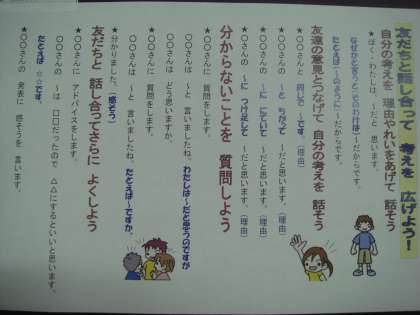 友だちと話し合って 考えを 広げよう！
自分の考えを 理由やれいをあげて 話そう
★ぼく・わたしは、～だと 思います。
なぜかと言うと(そのわけは)～だからです。
たとえば(～のように)～だからです。
友達の意見とつなげて 自分の考えを 話そう
★〇〇さんと 同じで ～です。(理由)
★〇〇さんの ～と ちがって ～だと思います。(理由)
★〇〇さんの ～に にていて ～だと思います。(理由)
★〇〇さんの ～に つけ足して ～だと思います。(理由)
分からないことを 質問しよう
★〇〇さんに 質問をします。
〇〇さんは ～と 言いましたね。わたしは～だと思うのですが
〇〇さんは どう思いますか。
★〇〇さんに 質問をします。
〇〇さんは ～と 言いましたね。たとえば～ですか。
★分かりました。(感そう)
友だちと 話し合ってさらに よくしよう
★〇〇さんに アドバイスをします。
〇〇さんの ～は 口口だったので △△にするといいと思います。
たとえば ☆☆です。
★〇〇さんの 発表に 感そうを 言います。